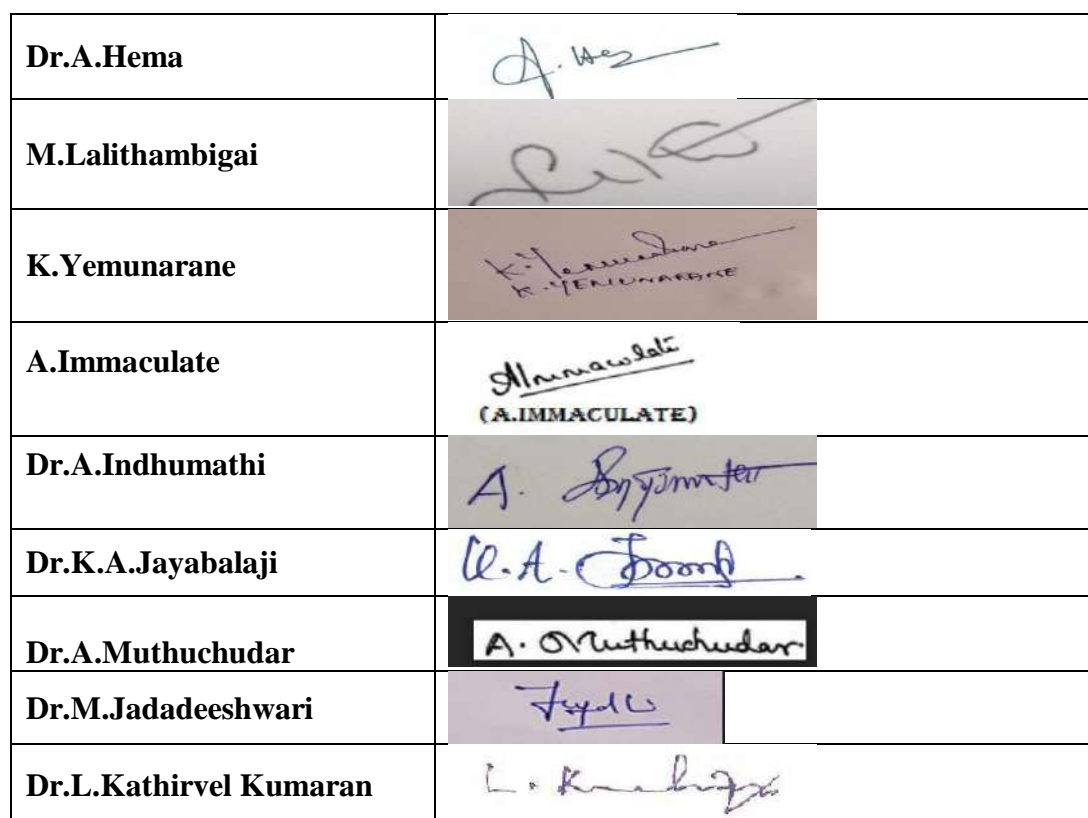 Dr.A.Hema
A.
M.Lalithambigai
K.Yemunarane
K.
K.YEMUNARANE
A.Immaculate
AImmaculate
(A.IMMACULATE)
Dr.A.Indhumathi
A.
Dr.K.A.Jayabalaji
K.A.
Dr.A.Muthuchudar
A. Muthuchudar
Dr.M.Jadadeeshwari
Dr.L.Kathirvel Kumaran
L.